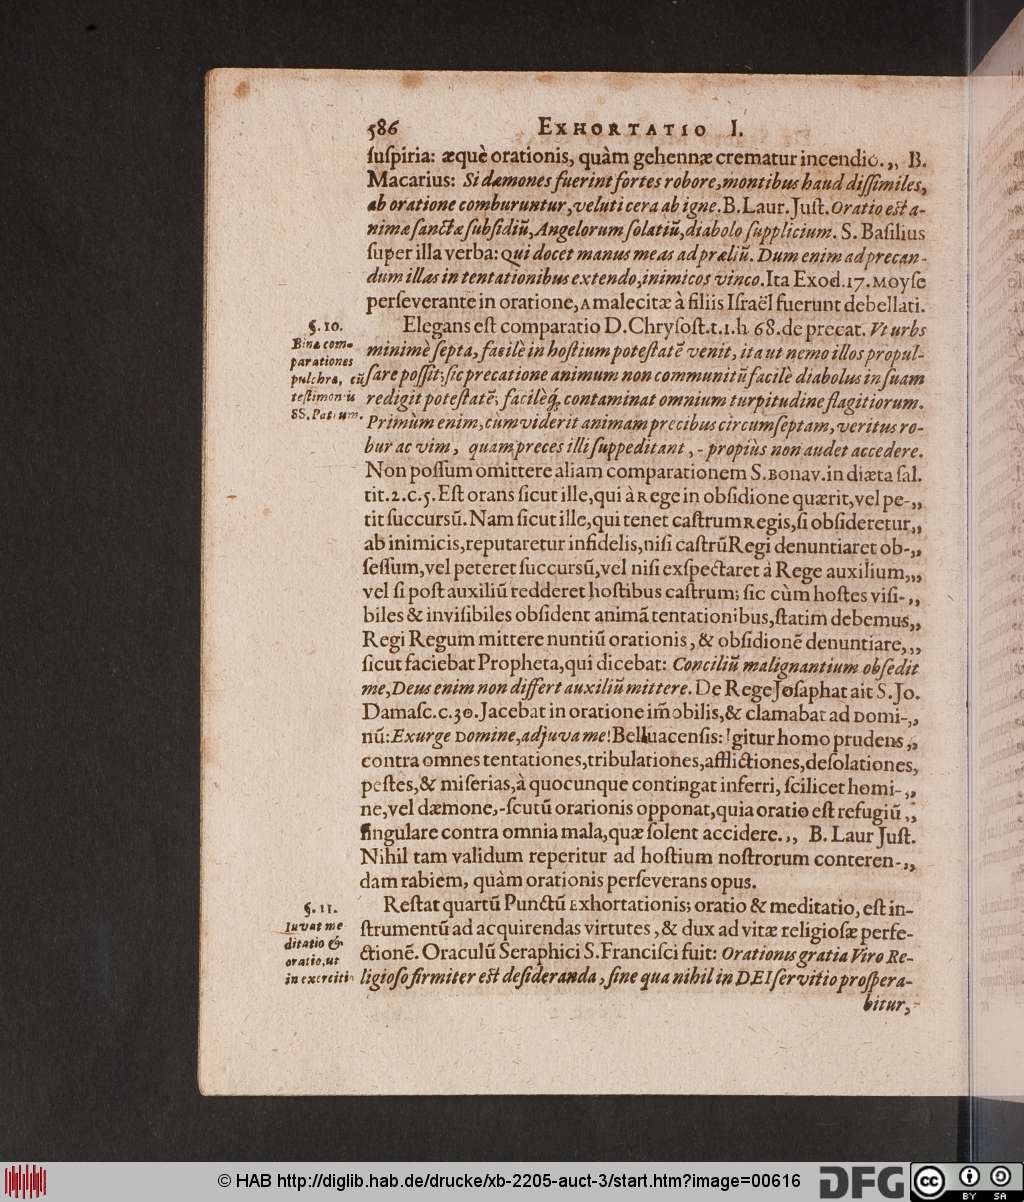 586 EXHORTATIO I.
ſuſpiria: æquè orationis, quàm gehennæ crematur incendio.,, B.
Macarius: Si dæmones fuerint fortes robore, montibus haud diſſimiles,
ab oratione comburuntur, veluti cera ab igne. B. Laur. Juſt. Oratio eſt a-
nimæ ſanctæ ſubſidiũ, Angelorum ſolatiũ, diabolo ſupplicium. S. Baſilius
ſuper illa verba: Qui docet manus meas ad præliũ. Dum enim ad precan-
dum illas in tentationibus extendo, inimicos vinco. Ita Exod. 17. Moyſe
perſeverante in oratione, Amalecitæ à filiis Iſraël fuerunt debellati.
§. 10.
Binæ com-
parationes
pulchræ, cũ
teſtimoniis
SS. Patrum.
Elegans eſt comparatio D. Chryſoſt. t. 1. h 68. de precat. Vt urbs
minimè ſepta, facilè in hoſtium poteſtatẽ venit, ita ut nemo illos propul-
ſare poſſit; ſic precatione animum non communitũ facilè diabolus in ſuam
redigit poteſtatẽ; facilèq́; contaminat omnium turpitudine flagitiorum.
Primùm enim, cùm viderit animam precibus circumſeptam, veritus ro-
bur ac vim, quam preces illi ſuppeditant, - propiùs non audet accedere.
Non poſſum omittere aliam comparationem S. Bonav. in diæta ſal.
tit. 2. c. 5. Eſt orans ſicut ille, qui à Rege in obſidione quærit, vel pe-,,
tit ſuccursũ. Nam ſicut ille, qui tenet caſtrum Regis, ſi obſideretur,,
ab inimicis, reputaretur infidelis, niſi caſtrũ Regi denuntiaret ob-,,
ſeſſum, vel peteret ſuccursũ, vel niſi exſpectaret à Rege auxilium,,,
vel ſi poſt auxiliũ redderet hoſtibus caſtrum; ſic cùm hoſtes viſi-,,
biles & inviſibiles obſident animã tentationibus, ſtatim debemus,,
Regi Regum mittere nuntiũ orationis, & obſidionẽ denuntiare,,,
ſicut faciebat Propheta, qui dicebat: Conciliũ malignantium obſedit
me, Deus enim non differt auxiliũ mittere. De Rege Joſaphat ait S. Jo.
Damaſc. c. 30. Jacebat in oratione im̃obilis, & clamabat ad Domi-,,
nũ: Exurge Domine, adjuva me! Belluacenſis: Igitur homo prudens,,
contra omnes tentationes, tribulationes, afflictiones, deſolationes,
peſtes, & miſerias, à quocunque contingat inferri, ſcilicet homi-,,
ne, vel dæmone, -ſcutũ orationis opponat, quia oratio eſt refugiũ,,
ſingulare contra omnia mala, quæ ſolent accidere.,, B. Laur Juſt.
Nihil tam validum reperitur ad hoſtium noſtrorum conteren-,,
dam rabiem, quàm orationis perſeverans opus.
§. 11.
Iuvat me
ditatio &
oratio, ut
in exerciti
Reſtat quartũ Punctũ Exhortationis; oratio & meditatio, eſt in-
ſtrumentũ ad acquirendas virtutes, & dux ad vitæ religioſæ perfe-
ctionẽ. Oraculũ Seraphici S. Franciſci fuit: Orationis gratia Viro Re-
ligioſo firmiter eſt deſideranda, ſine qua nihil in DEI ſervitio proſpera-
bitur,
© HAB http://diglib.hab.de/drucke/xb-2205-auct-3/start.htm?image=00616
DFG
cc BY SA